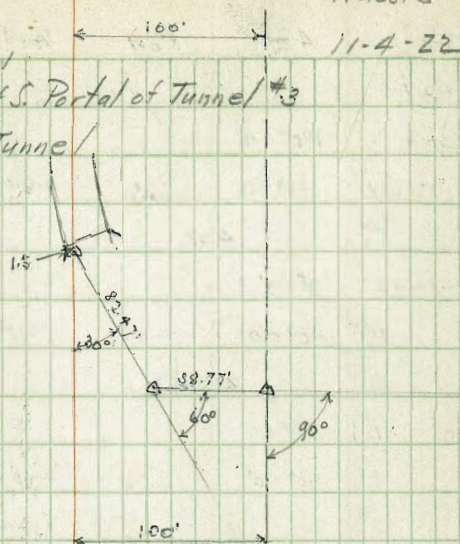 100'
11-4-22
S. Portal of Tunnel #3
Tunnel
1.5
82.47'
30°
58.77'
60°
90°
100'